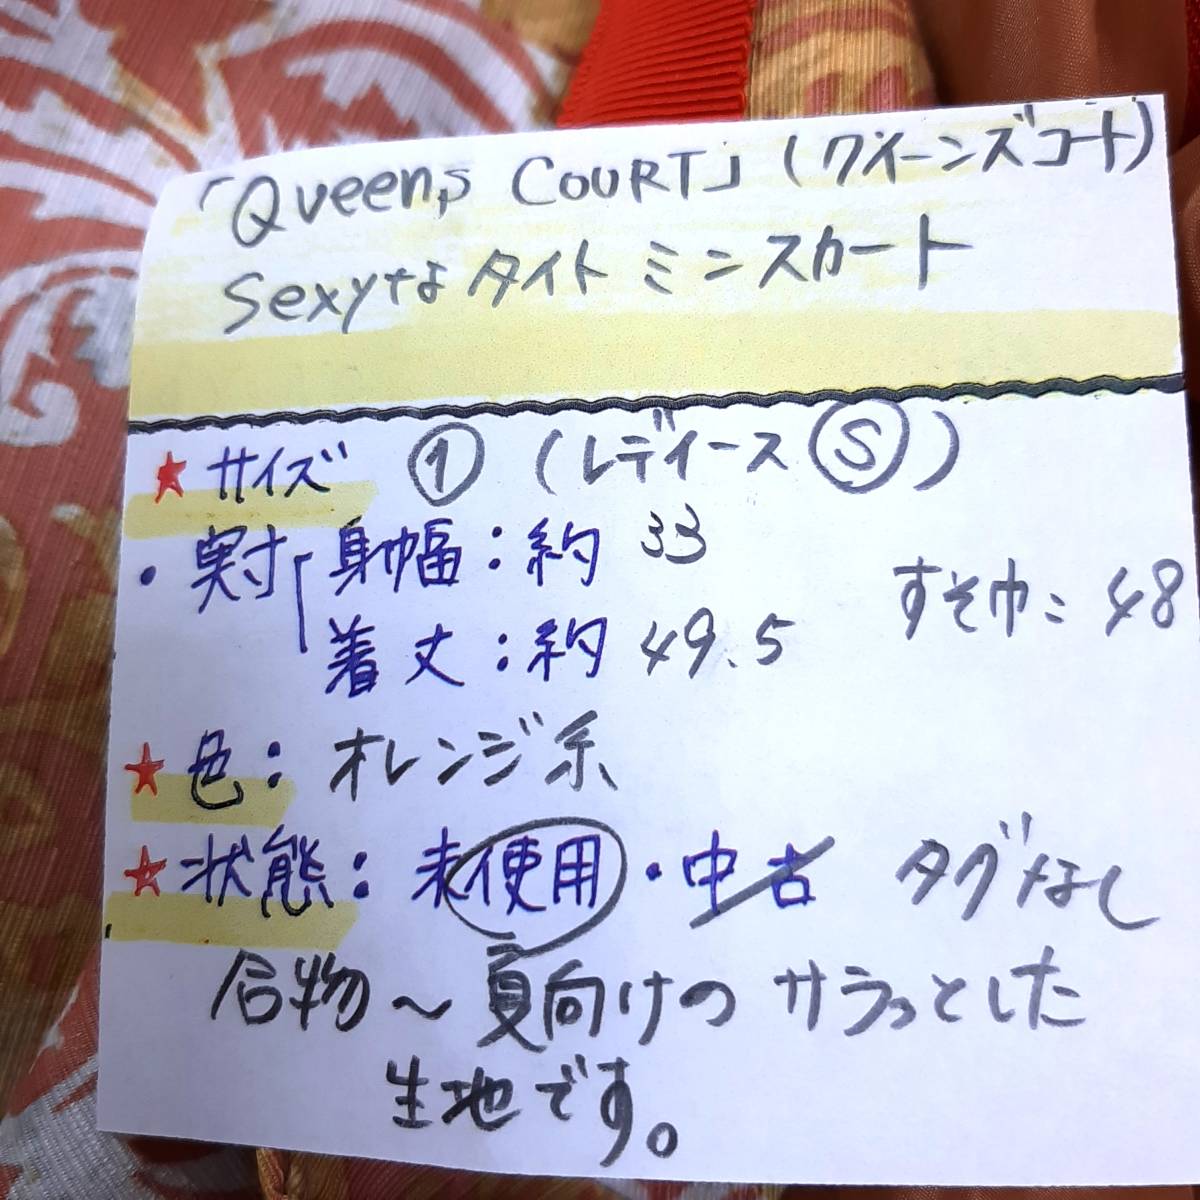 「Queens COURT」(クイーンズコート)
Sexyなタイトミニスカート
★サイズ ① (レディースⓈ)
・実寸 身幅：約 33
着丈：約 49.5 すそ巾：48
★色：オレンジ系
★状態：未使用・中古 タグなし
合物～夏向けのサラっとした
生地です。